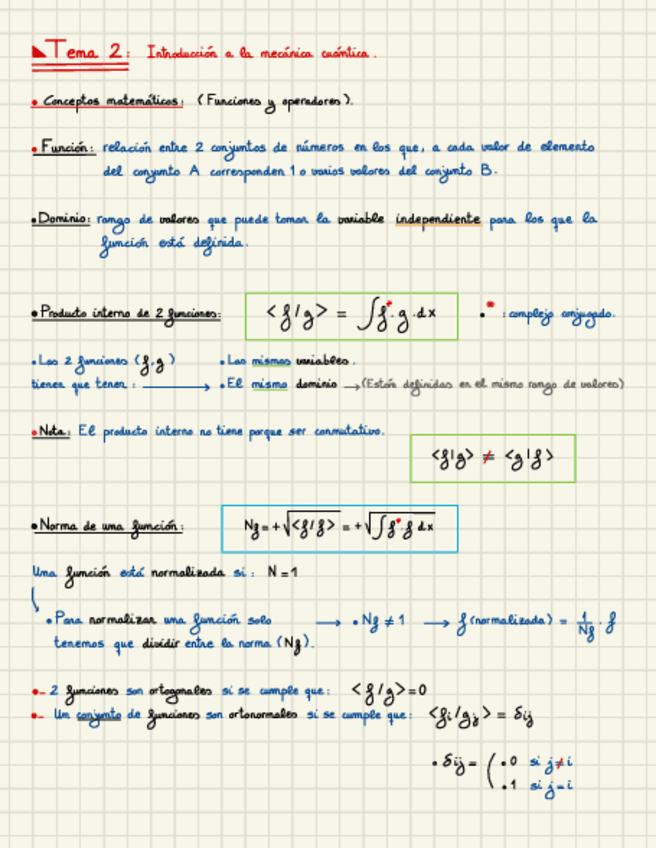 Tema 2: Introducción a la mecánica cuántica.
• Conceptos matemáticos: (Funciones y operadores).
• Función: relación entre 2 conjuntos de números en los que, a cada valor de elemento
del conjunto A corresponden 1 o varios valores del conjunto B.
• Dominio: rango de valores que puede tomar la variable independiente para los que la
función está definida.
• Producto interno de 2 funciones: <f/g> = ∫f*·g·dx • * : complejo conjugado.
• Las 2 funciones (f,g) • Las mismas variables.
tienen que tener: → • El mismo dominio → (Están definidas en el mismo rango de valores)
• Nota: El producto interno no tiene porque ser conmutativo.
<f|g> ≠ <g|f>
• Norma de una función: Nf = +√<f/f> = +√∫f*·f dx
Una función está normalizada si: N = 1
• Para normalizar una función solo → • Nf ≠ 1 → f(normalizada) = 1/Nf · f
tenemos que dividir entre la norma (Nf).
•- 2 funciones son ortogonales si se cumple que: <f/g> = 0
•- Un conjunto de funciones son ortonormales si se cumple que: <fi/gj> = δij
• δij = ( • 0 si j≠i
• 1 si j=i